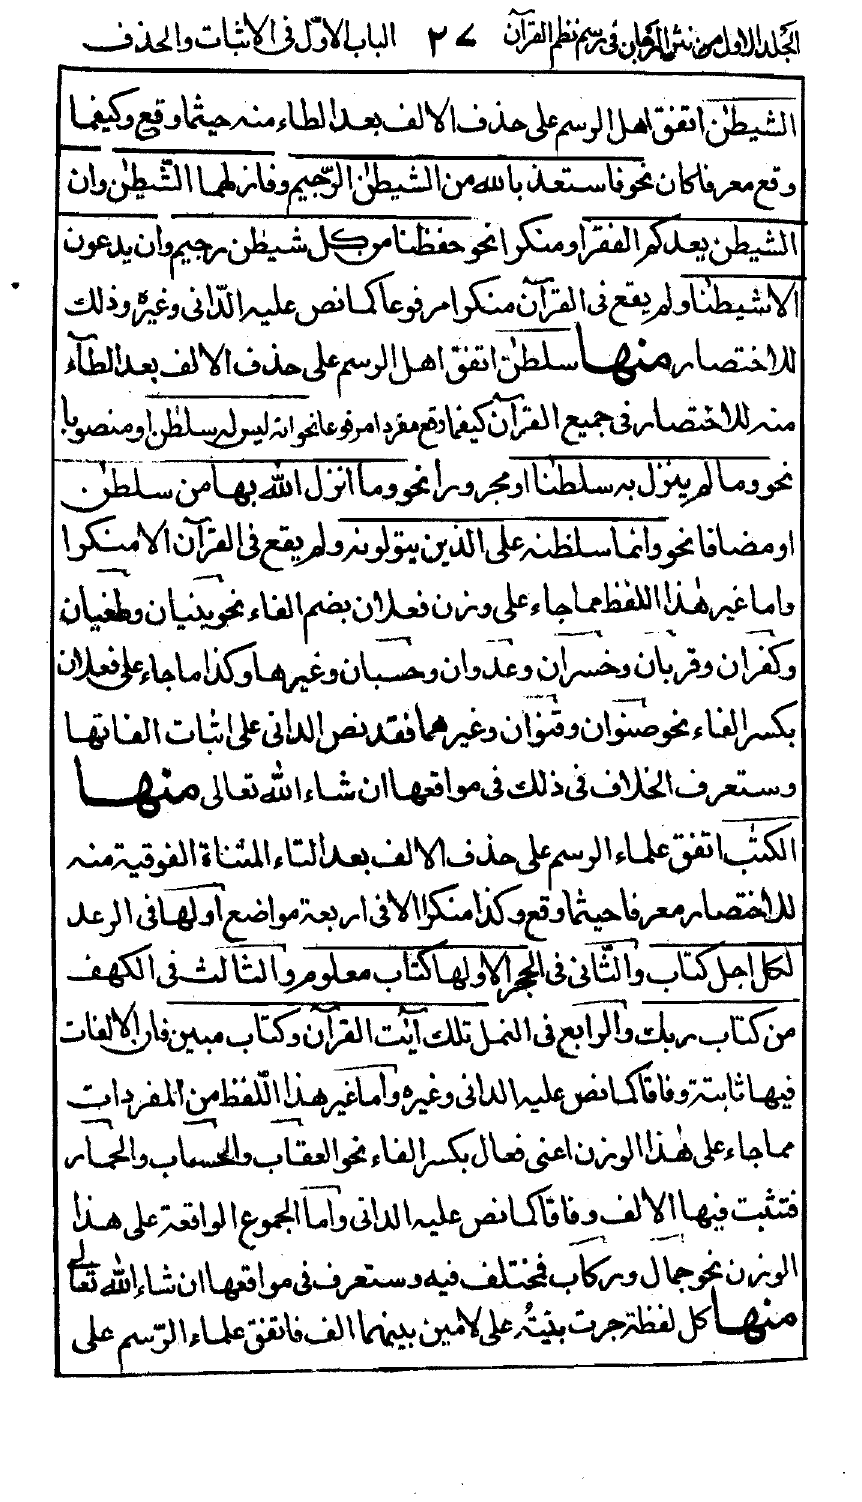 الجلد الاول من نثر المرجان فی رسم نظم القرآن ٢٧ الباب الاوّل فی الاثبات والحذف
الشیطٰن اتفق اهل الرسم علی حذف الالف بعد الطاء منه حیثما وقع وکیفما
وقع معرفا کان نحو فاستعذ بالله من الشیطٰن الرّجیم وفازلهما الشّیطٰن وان
الشیطٰن یعدکم الفقر او منکرا نحو حفظنا من کل شیطٰن رجیم وان یدعون
الا شیطٰنا ولم یقع فی القرآن منکرا مرفوعا کما نص علیه الدّانی وغیره وذلك
للاختصار منها سلطٰن اتفق اهل الرسم علی حذف الالف بعد الطآء
منه للاختصار فی جمیع القرآن کیفما وقع مفردا مرفوعا نحو انه لیس له سلطٰن او منصوبا
نحو وما لم ینزل به سلطٰنا او مجرورا نحو وما انزل الله بها من سلطٰن
او مضافا نحو وانما سلطٰنه علی الذین یتولونه ولم یقع فی القرآن الا منکرا
واما غیر هٰذا اللفظ مما جاء علی وزن فعلان بضم الفاء نحو بنیان وطغیان
وکفران وقربان وخسران وعدوان وحسبان وغیرها وکذا ما جاء علی فعلان
بکسر الفاء نحو صنوان وقنوان وغیرهما فقد نص الدانی علی اثبات الفاتها
وستعرف الخلاف فی ذلك فی مواقعها ان شاء الله تعالی منها
الکتٰب اتفق علماء الرسم علی حذف الالف بعد التاء المثناة الفوقیة منه
للاختصار معرفا حیثما وقع وکذا منکرا الا فی اربعة مواضع اولها فی الرعد
لکل اجل کتاب والثّانی فی الحجر الا ولها کتاب معلوم والثالث فی الکهف
من کتاب ربك والرابع فی النمل تلك اٰیٰت القرآن وکتاب مبین فان الالفات
فیها ثابتة وفاقا کما نص علیه الدانی وغیره واما غیر هذا اللّفظ من المفردات
مما جاء علی هٰذا الوزن اعنی فعال بکسر الفاء نحو العقاب والحساب والحمار
فتثبت فیها الالف وفاقا کما نص علیه الدانی واما الجموع الواقعة علی هذا
الوزن نحو جمال ورکاب فمختلف فیه وستعرف فی مواقعها ان شاء الله تعالی
منها کل لفظة جرت بنیتُه علی لامین بینهما الف فاتفق علماء الرّسم علی